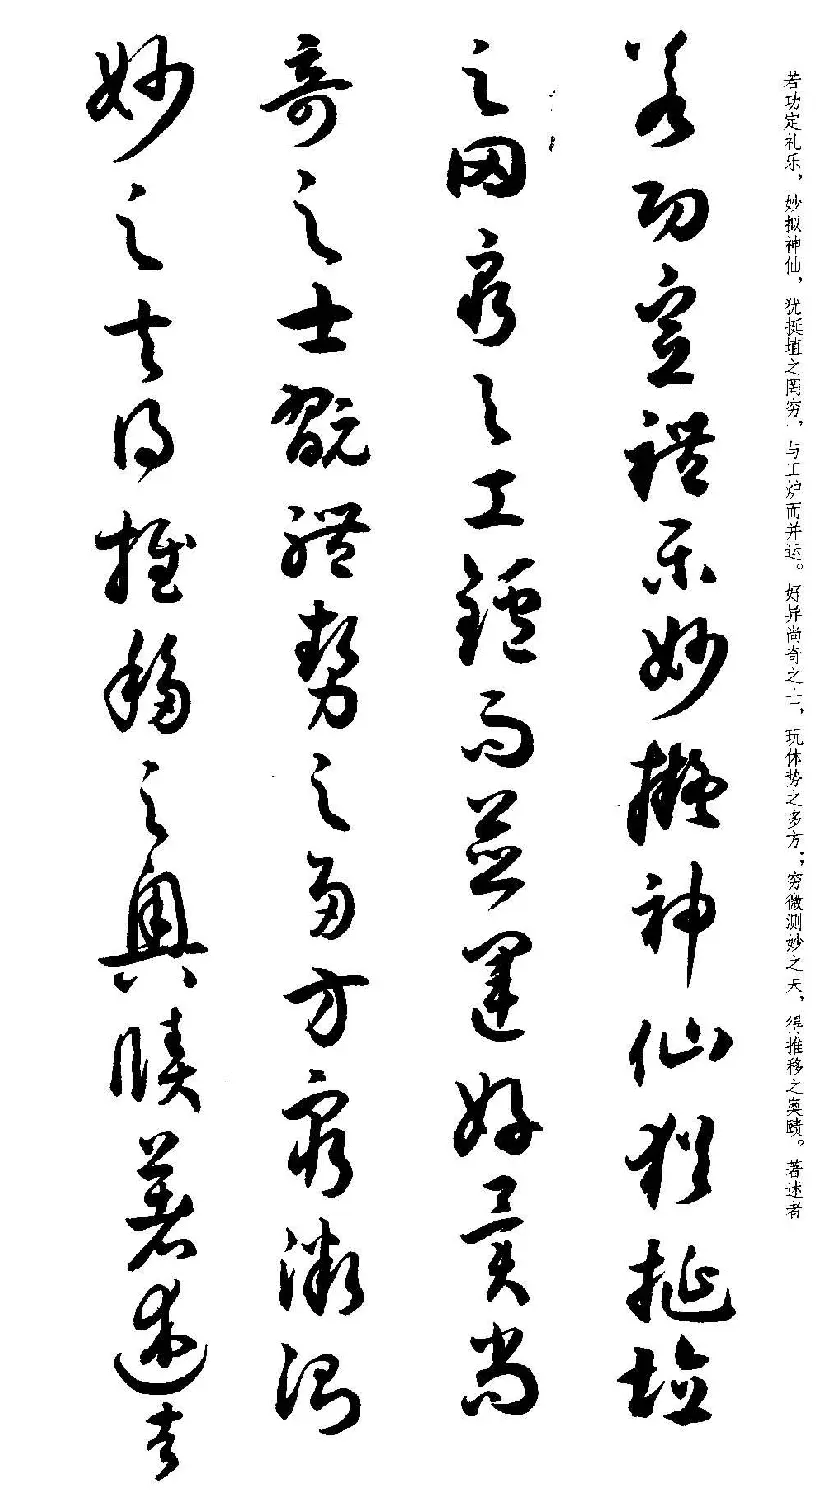 若功定礼乐，妙拟神仙，犹挻埴之罔穷，与工炉而并运。好异尚奇之士，玩体势之多方；穷微测妙之夫，得推移之奥赜。著述者
若功定禮乐妙擬神仙猶挻埴
之罔窮与工鑪而並運好異尚
奇之士翫體勢之多方窮微測
妙之夫得推移之奧賾著述者